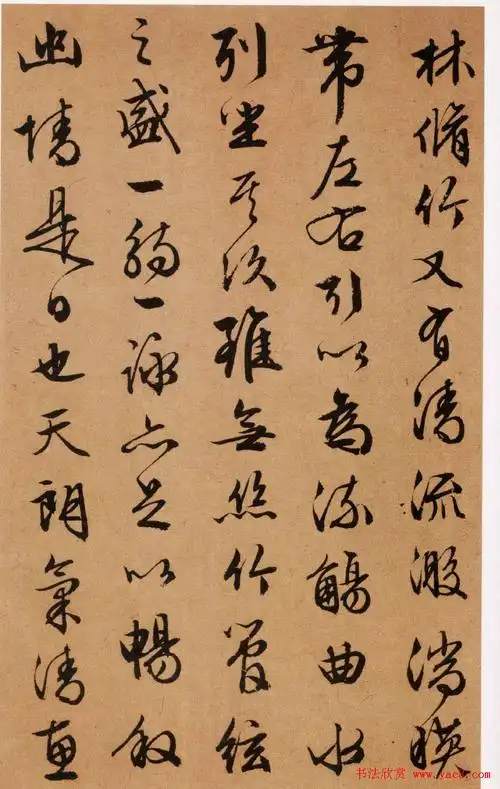 林脩竹又有清流激湍暎
帶左右引以為流觴曲水
列坐其次雖無絲竹管絃
之盛一觴一詠亦足以暢敘
幽情是日也天朗氣清惠
书法欣赏 www.yac8.com